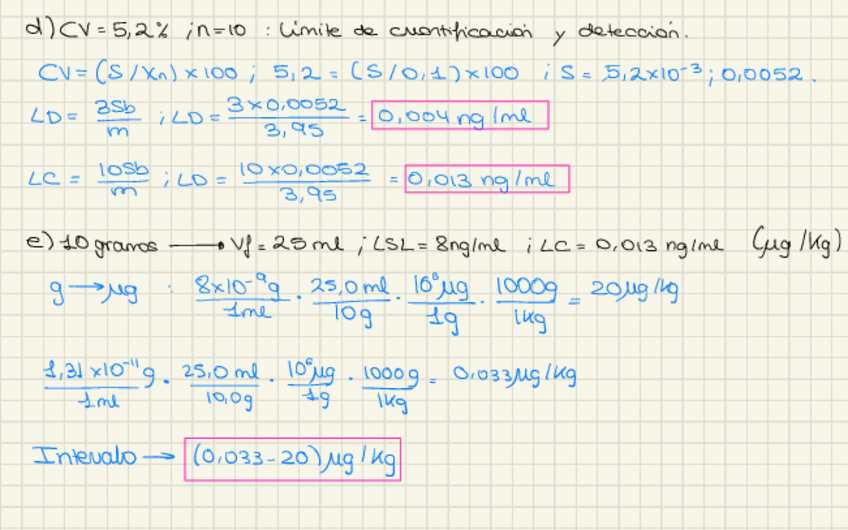 d) CV = 5,2% ; n=10 : Límite de cuantificación y detección.
CV = (S/Xn) × 100 ; 5,2 = (S/0,1) × 100 ; S = 5,2×10⁻³ ; 0,0052.
LD = 3Sb/m ; LD = 3×0,0052/3,95 = 0,004 ng/ml
LC = 10Sb/m ; LD = 10×0,0052/3,95 = 0,013 ng/ml
e) 10 gramos → Vf = 25 ml ; LSL = 8ng/ml ; LC = 0,013 ng/ml (µg/Kg)
g → µg : 8×10⁻⁹g/1ml · 25,0 ml/10g · 10⁶µg/1g · 1000g/1Kg = 20µg/Kg
1,31×10⁻¹¹g/1ml · 25,0 ml/10,0g · 10⁶µg/1g · 1000g/1Kg = 0,033µg/Kg
Intervalo → (0,033-20) µg/Kg